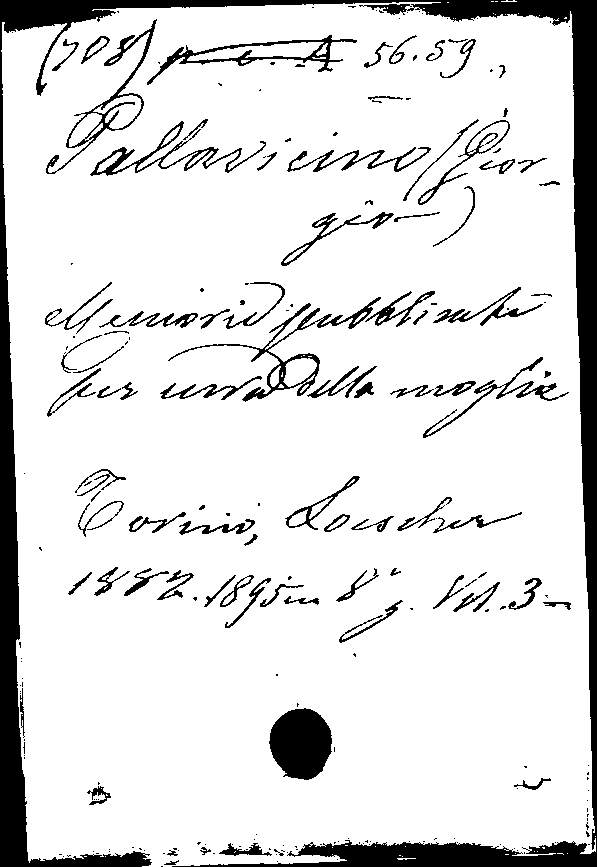 (708) p. c. A 56.59.
Pallavicino (Gior-
gio)
Memorie pubblicate
per cura della moglie
Torino, Loescher
1882.1895 in 8° g. Vol. 3